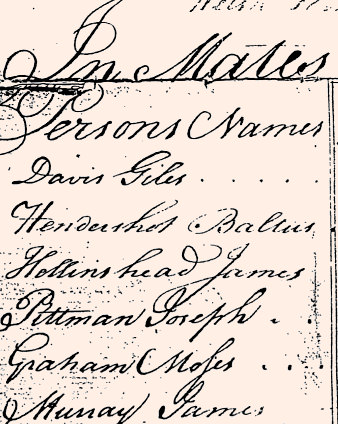 In Mates
Persons Names
Davis Giles . . . . .
Hendershot Baltus .
Hollinshead James
Pittman Joseph . .
Graham Moses . . .
Murray James